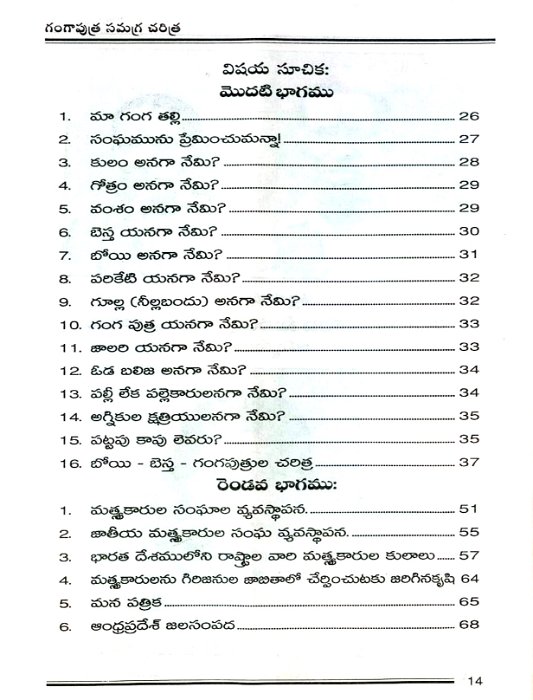 గంగాపుత్ర సమగ్ర చరిత్ర
విషయ సూచిక:
మొదటి భాగము
1. మా గంగ తల్లి 26
2. సంఘమును ప్రేమించుమన్నా! 27
3. కులం అనగా నేమి? 28
4. గోత్రం అనగా నేమి? 29
5. వంశం అనగా నేమి? 29
6. బెస్త యనగా నేమి? 30
7. బోయి అనగా నేమి? 31
8. పరికేటి యనగా నేమి? 32
9. గూల్ల (నీల్లబందు) అనగా నేమి? 32
10. గంగ పుత్ర యనగా నేమి? 33
11. జాలరి యనగా నేమి? 33
12. ఓడ బలిజ అనగా నేమి? 34
13. పల్లీ లేక పల్లెకారులనగా నేమి? 34
14. అగ్నికుల క్షత్రియులనగా నేమి? 35
15. పట్టపు కాపు లెవరు? 35
16. బోయి - బెస్త - గంగపుత్రుల చరిత్ర 37
రెండవ భాగము:
1. మత్స్యకారుల సంఘాల వ్యవస్థాపన. 51
2. జాతీయ మత్స్యకారుల సంఘ వ్యవస్థాపన. 55
3. భారత దేశములోని రాష్ట్రాల వారి మత్స్యకారుల కులాలు 57
4. మత్స్యకారులను గిరిజనుల జాబితాలో చేర్పించుటకు జరిగినకృషి 64
5. మన పత్రిక 65
6. ఆంధ్రప్రదేశ్ జలసంపద 68
14